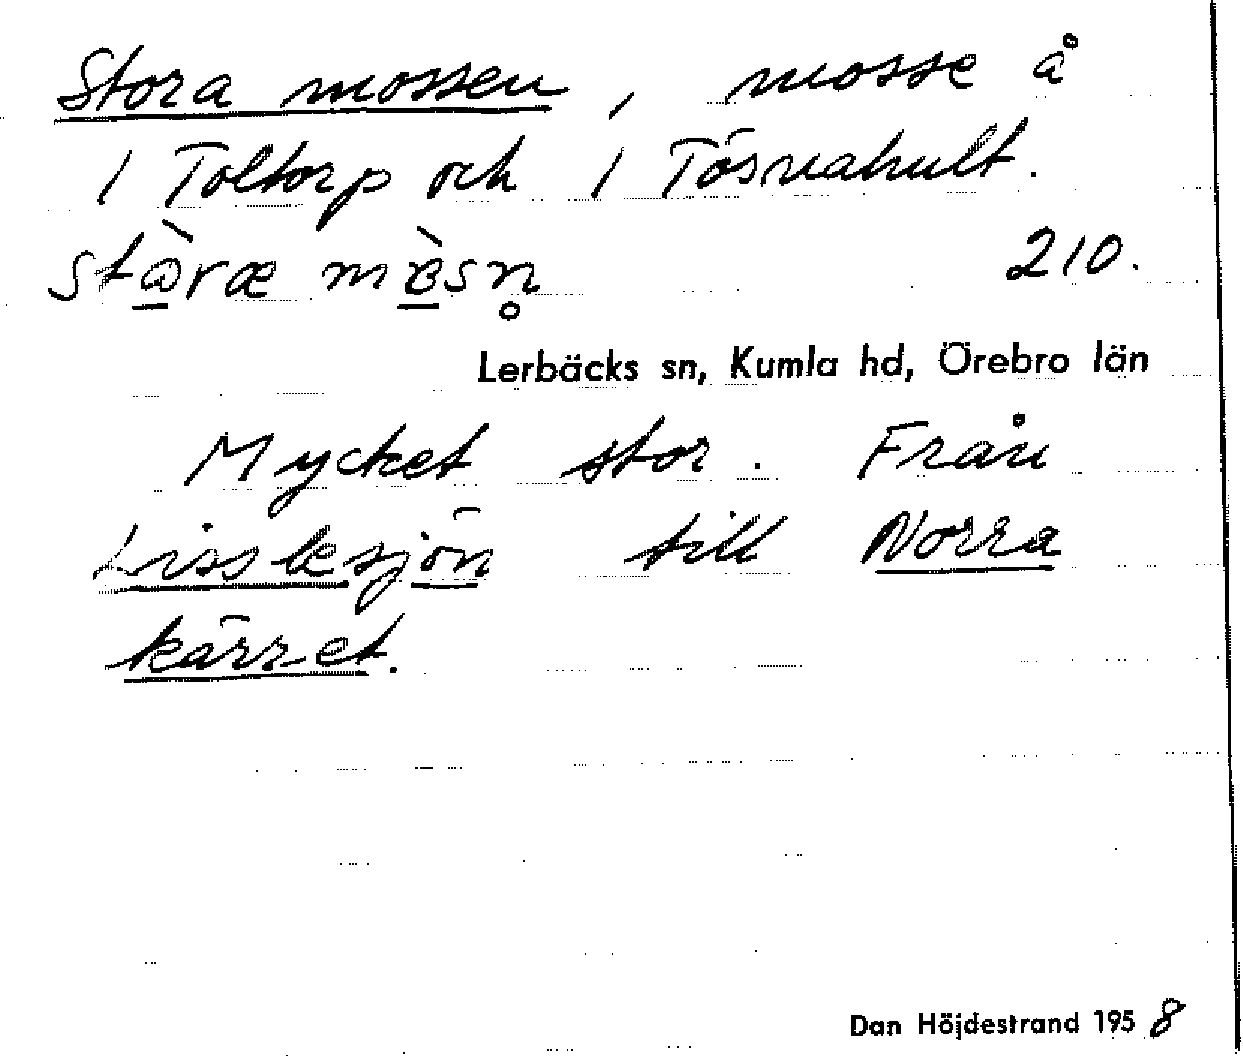 Stora mossen, mosse å
1 Toltorp och 1 Tösnahult.
210.
Lerbäcks sn, Kumla hd, Örebro län
Mycket stor. Från
Lisslesjön till Norra
kärret.
Dan Höjdestrand 1958